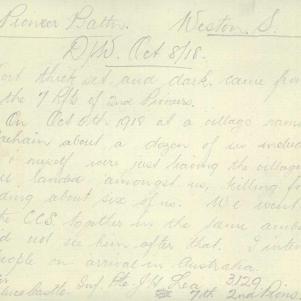 Pioneer Battn. Weston. S.
D/W. Oct 8/18.
ort thick set and dark, came from
the 7 Rfs of 2nd Pioneers.
On Oct 6th 1918 at a village named
brehain about, a dozen of us includ
myself were just leaving the village
landed amongst us, killing fo
ding about six of us. We went
C.C.S. together in the same amb
d not see him after that. I inten
eople on arrival in Australia.
Inf Pte. Lea 3129
7th 2nd Pion